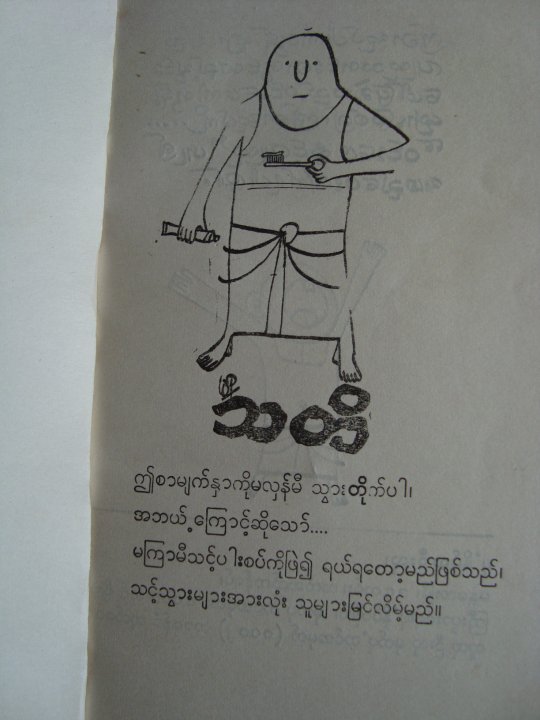 သတိ
ဤစာမျက်နှာကိုမလှန်မီ သွားတိုက်ပါ၊
အဘယ့်ကြောင့်ဆိုသော်....
မကြာမီသင့်ပါးစပ်ကိုဖြဲ၍ ရယ်ရတော့မည်ဖြစ်သည်၊
သင့်သွားများအားလုံး သူများမြင်လိမ့်မည်။